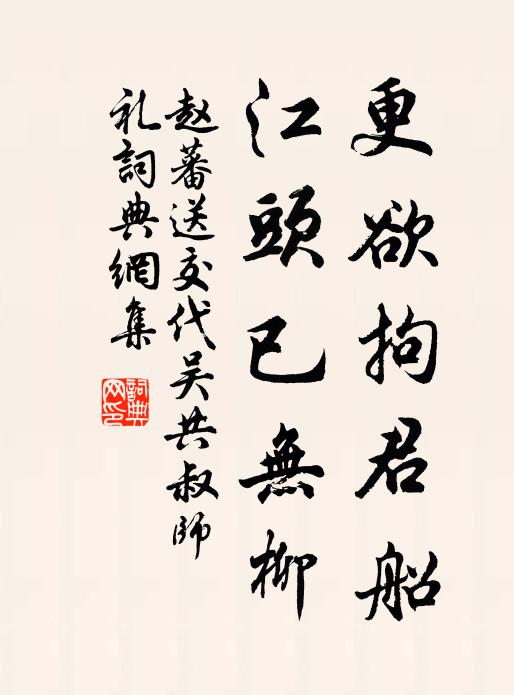 更欲拘君船
江頭已無柳
赵蕃送交代吴共叔師
礼詞典網集
詞典
网印